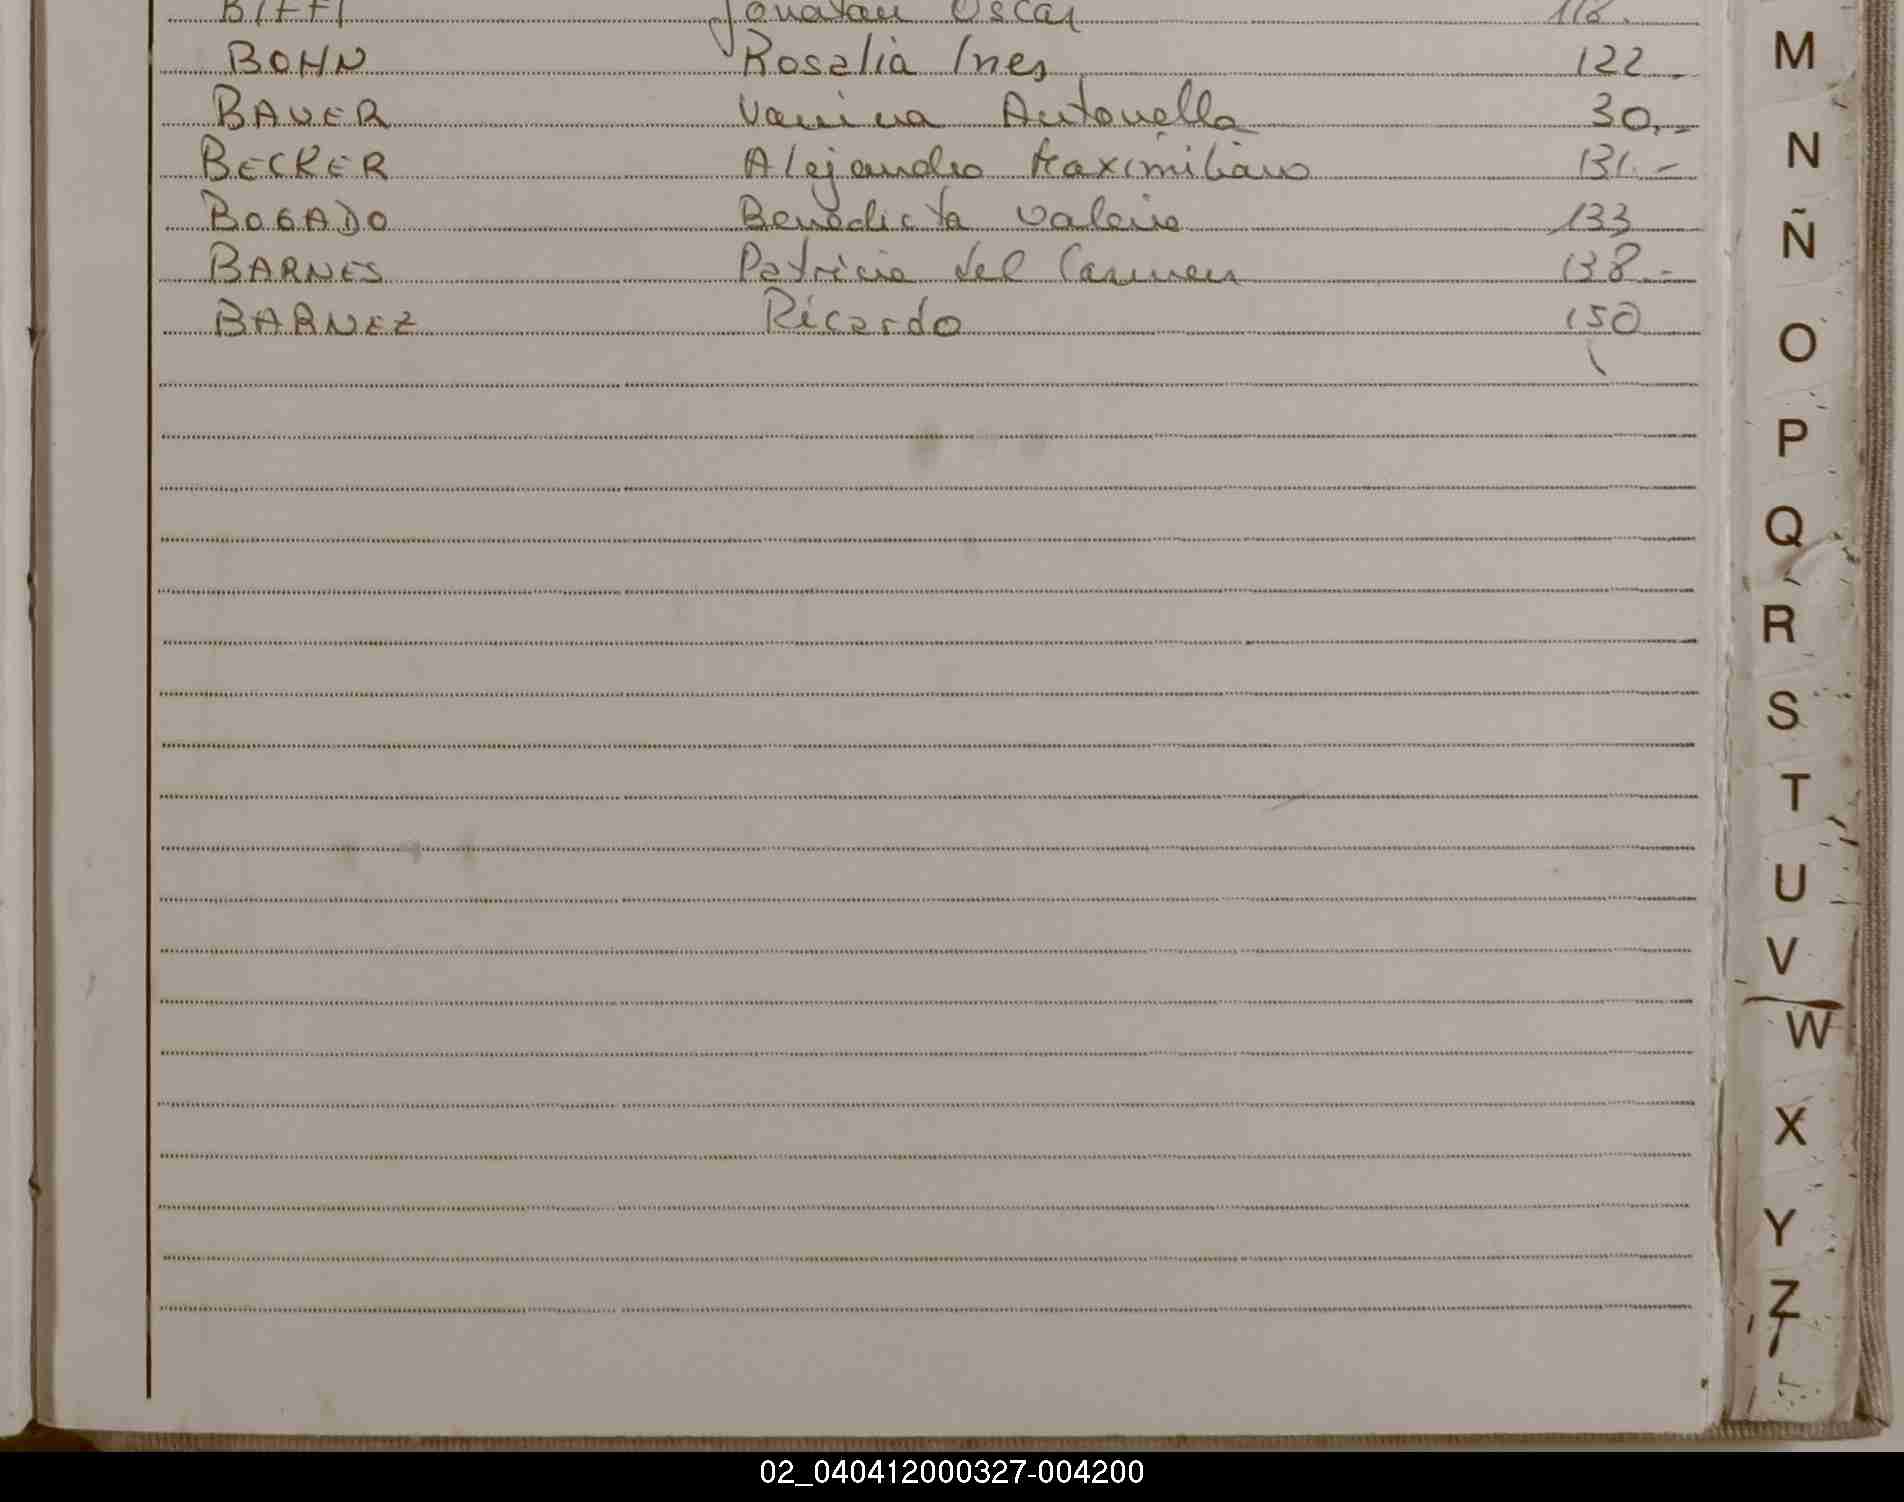 BIFFI Jonatan Oscar 118.
BOHN Rosalia Ines 122.-
BAUER Vanina Antonella 30.-
BECKER Alejandro Maximiliano 131.-
BOGADO Benedicta Valeria 133
BARNES Patricia del Carmen 138.-
BARNEZ Ricardo 150
M
N
Ñ
O
P
Q
R
S
T
U
V
W
X
Y
Z
02_040412000327-004200